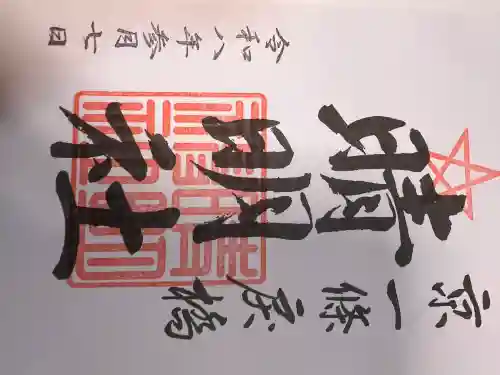 京一條戻橋
晴明社
令和八年参月七日